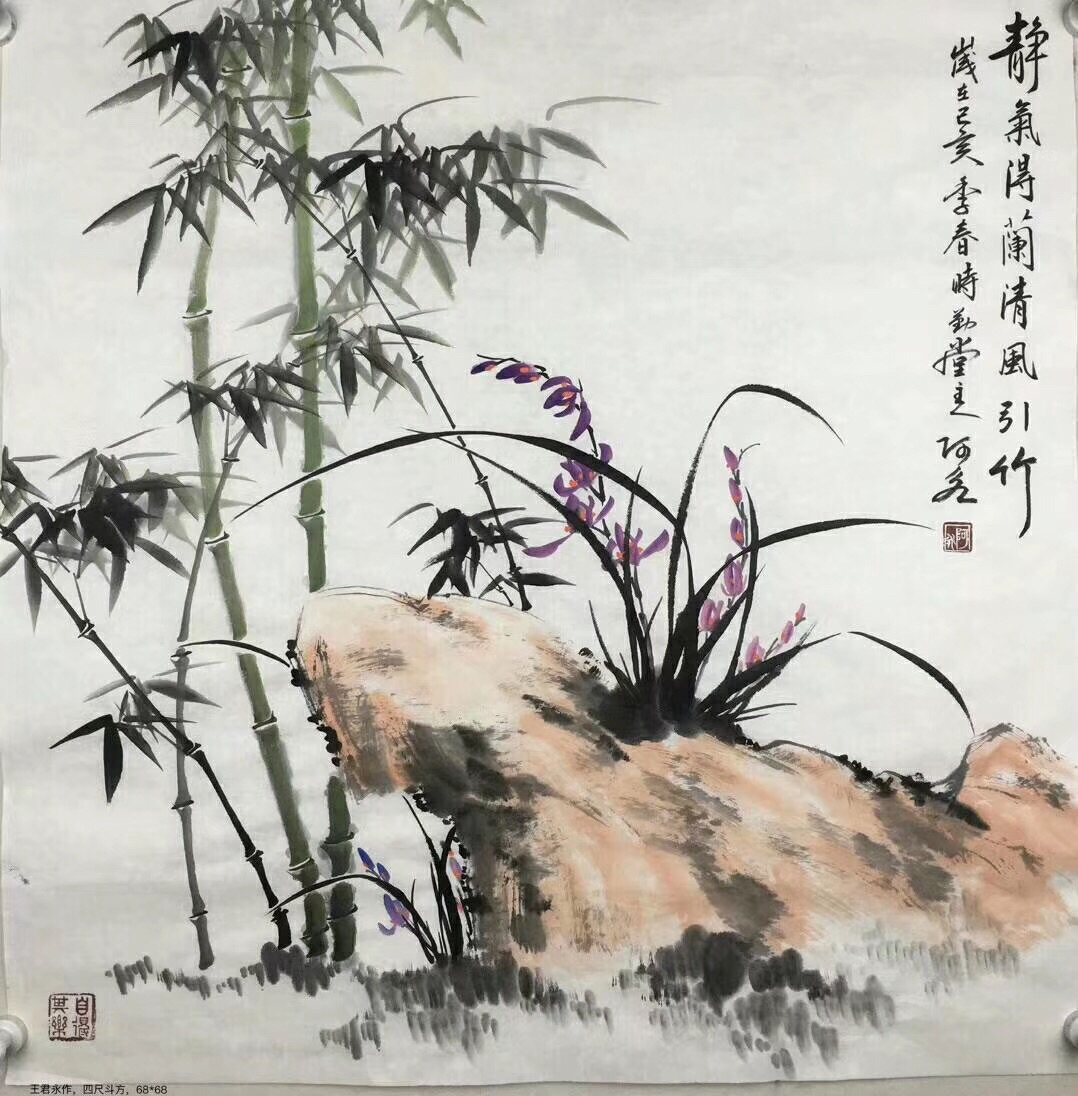 靜氣得蘭清風引竹
歲在己亥季春時勤堂主阿永
阿永
自得其樂
王君永作，四尺斗方，68*68